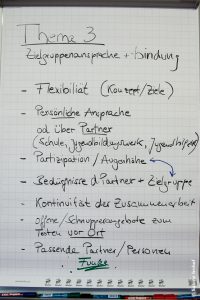 Thema 3
Zielgruppenansprache + bindung
- Flexibiliät (Konzept/Ziele)
- Persönliche Ansprache
od über Partner
(Schule, Jugendbildungswerk, Jugendhilfe)
- Partizipation / Augenhöhe
- Bedüfgnisse d Partner + Zielgruppe
- Kontinuität der Zusammenarbeit
- offene / Schnupperangebote zum
Testen vor Ort
- Passende Partner / Personen
Funke